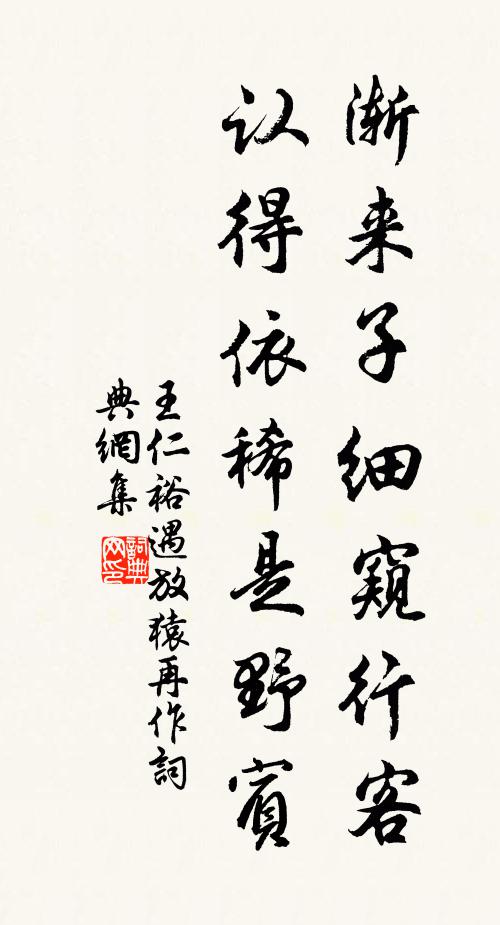 渐来子细窥行客
认得依稀是野賓
王仁裕遇放猿再作詞
典網集
詞典網印